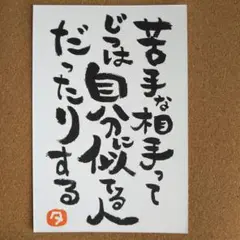 苦手な相手って
じつは
自分に似てる人
だったりする
夕